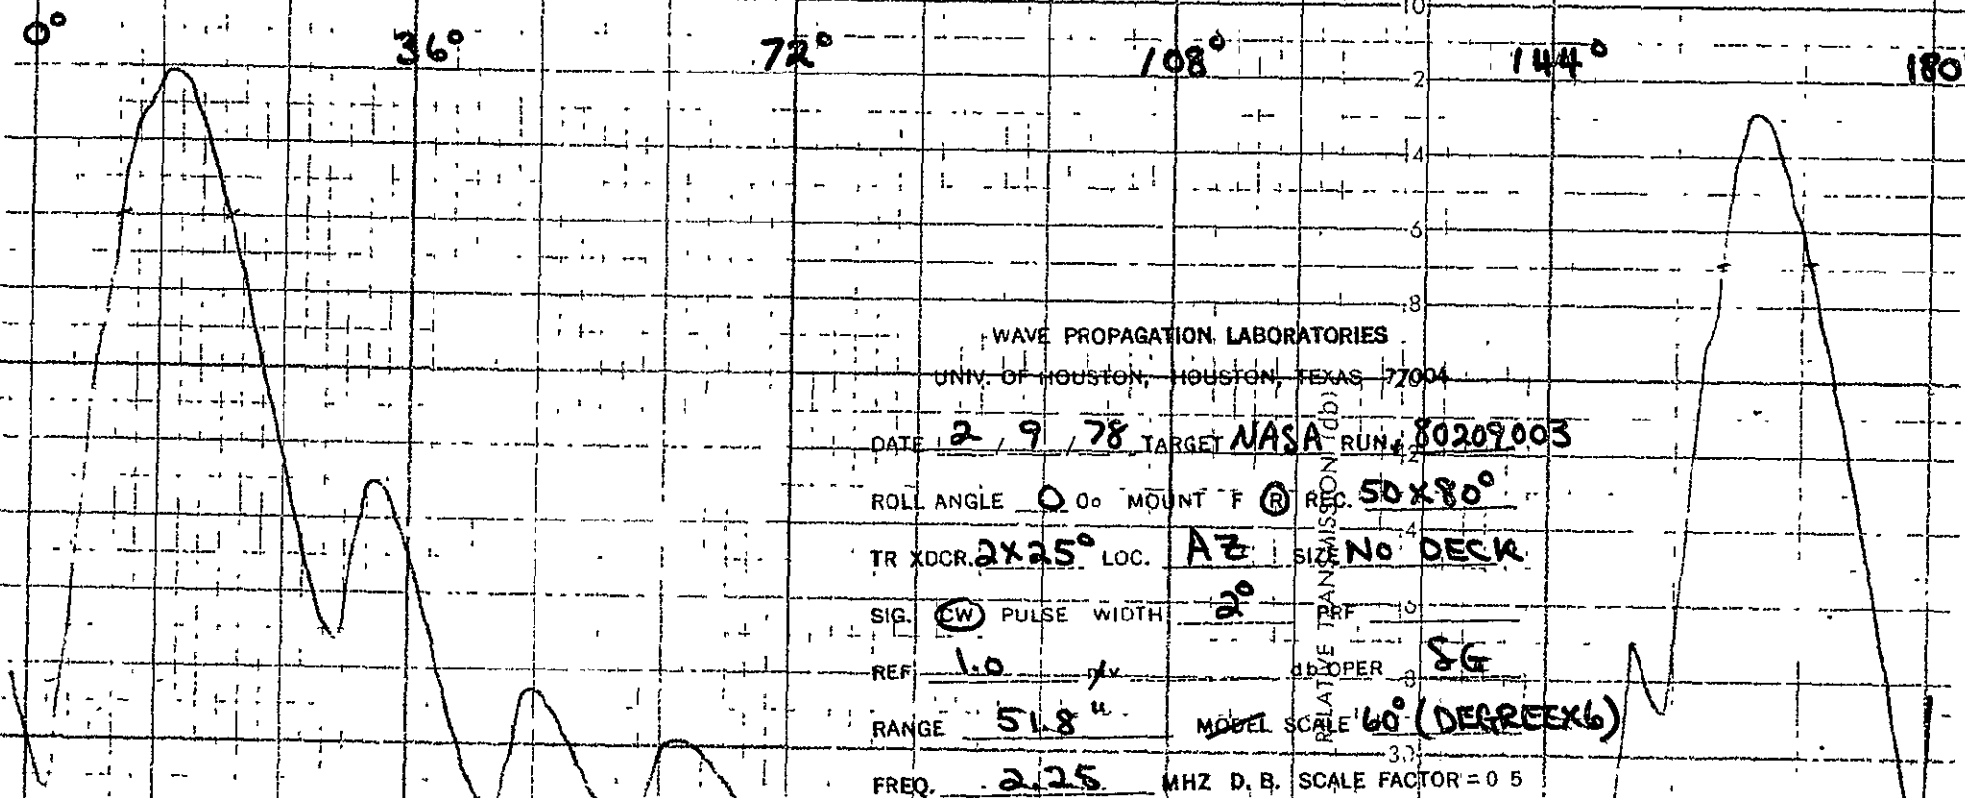 0° 36° 72° 108° 144° 180°
10
2
4
6
8
WAVE PROPAGATION LABORATORIES
UNIV. OF HOUSTON, HOUSTON, TEXAS 77004
DATE 2 / 9 / 78 TARGET NASA RUN 80209003
ROLL ANGLE 0 0o MOUNT F R REC. 50X80°
TR XDCR. 2X25° LOC. AZ SIZE NO DECK
SIG. CW PULSE WIDTH 2° PRF
REF 1.0 db OPER SG
RANGE 51.8" MODEL SCALE 60° (DEGREEX6)
FREQ. 2.25 MHZ D.B. SCALE FACTOR = 0 5
RELATIVE TRANSMISSION (db)
2
4
6
8
30